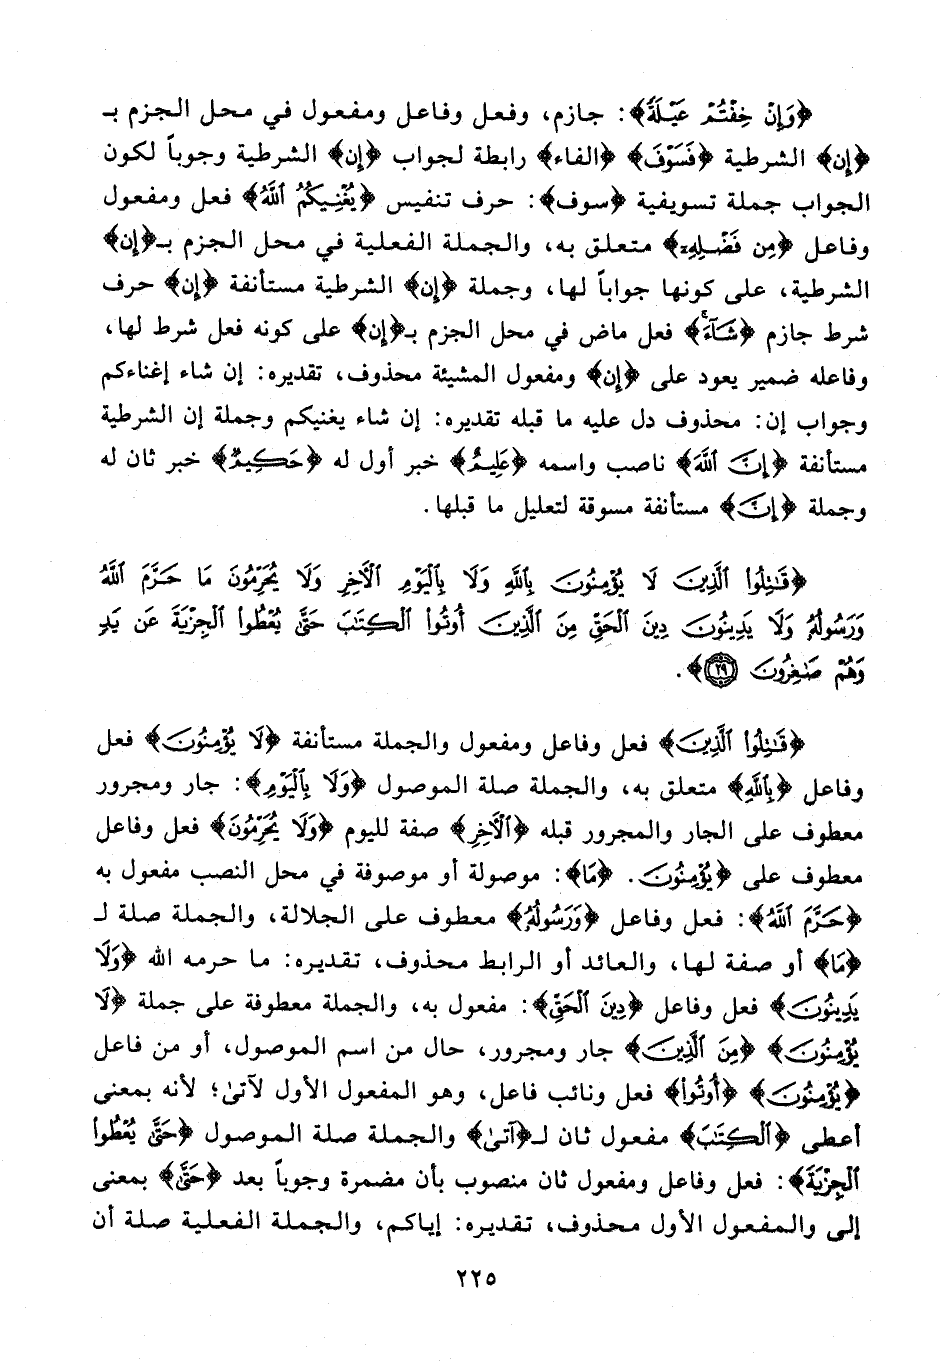 ﴿وَإِنْ خِفْتُمْ عَيْلَةً﴾: جازم، وفعل وفاعل ومفعول في محل الجزم بـ
﴿إن﴾ الشرطية ﴿فَسَوْفَ﴾ ﴿الفاء﴾ رابطة لجواب ﴿إن﴾ الشرطية وجوباً لكون
الجواب جملة تسويفية ﴿سوف﴾: حرف تنفيس ﴿يُغْنِيكُمُ ٱللَّهُ﴾ فعل ومفعول
وفاعل ﴿مِن فَضْلِهِۦ﴾ متعلق به، والجملة الفعلية في محل الجزم بـ﴿إن﴾
الشرطية، على كونها جواباً لها، وجملة ﴿إن﴾ الشرطية مستأنفة ﴿إن﴾ حرف
شرط جازم ﴿شَآءَ﴾ فعل ماض في محل الجزم بـ﴿إن﴾ على كونه فعل شرط لها،
وفاعله ضمير يعود على ﴿إن﴾ ومفعول المشيئة محذوف، تقديره: إن شاء إغناءكم
وجواب إن: محذوف دل عليه ما قبله تقديره: إن شاء يغنيكم وجملة إن الشرطية
مستأنفة ﴿إِنَّ ٱللَّهَ﴾ ناصب واسمه ﴿عَلِيمٌ﴾ خبر أول له ﴿حَكِيمٌ﴾ خبر ثان له
وجملة ﴿إِنَّ﴾ مستأنفة مسوقة لتعليل ما قبلها.
﴿قَٰتِلُوا ٱلَّذِينَ لَا يُؤْمِنُونَ بِٱللَّهِ وَلَا بِٱلْيَوْمِ ٱلْآخِرِ وَلَا يُحَرِّمُونَ مَا حَرَّمَ ٱللَّهُ
وَرَسُولُهُ وَلَا يَدِينُونَ دِينَ ٱلْحَقِّ مِنَ ٱلَّذِينَ أُوتُوا ٱلْكِتَٰبَ حَتَّىٰ يُعْطُوا ٱلْجِزْيَةَ عَن يَدٍ
وَهُمْ صَٰغِرُونَ ﴿٢٩﴾﴾.
﴿قَٰتِلُوا ٱلَّذِينَ﴾ فعل وفاعل ومفعول والجملة مستأنفة ﴿لَا يُؤْمِنُونَ﴾ فعل
وفاعل ﴿بِٱللَّهِ﴾ متعلق به، والجملة صلة الموصول ﴿وَلَا بِٱلْيَوْمِ﴾: جار ومجرور
معطوف على الجار والمجرور قبله ﴿ٱلْآخِرِ﴾ صفة لليوم ﴿وَلَا يُحَرِّمُونَ﴾ فعل وفاعل
معطوف على ﴿يُؤْمِنُونَ﴾. ﴿مَا﴾: موصولة أو موصوفة في محل النصب مفعول به
﴿حَرَّمَ ٱللَّهُ﴾: فعل وفاعل ﴿وَرَسُولُهُ﴾ معطوف على الجلالة، والجملة صلة لـ
﴿مَا﴾ أو صفة لها، والعائد أو الرابط محذوف، تقديره: ما حرمه الله ﴿وَلَا
يَدِينُونَ﴾ فعل وفاعل ﴿دِينَ ٱلْحَقِّ﴾: مفعول به، والجملة معطوفة على جملة ﴿لَا
يُؤْمِنُونَ﴾ ﴿مِنَ ٱلَّذِينَ﴾ جار ومجرور، حال من اسم الموصول، أو من فاعل
﴿يُؤْمِنُونَ﴾ ﴿أُوتُوا﴾ فعل ونائب فاعل، وهو المفعول الأول لآتىٰ؛ لأنه بمعنى
أعطى ﴿ٱلْكِتَٰبَ﴾ مفعول ثان لـ﴿آتىٰ﴾ والجملة صلة الموصول ﴿حَتَّىٰ يُعْطُوا
ٱلْجِزْيَةَ﴾: فعل وفاعل ومفعول ثان منصوب بأن مضمرة وجوباً بعد ﴿حَتَّىٰ﴾ بمعنى
إلى والمفعول الأول محذوف، تقديره: إياكم، والجملة الفعلية صلة أن
٢٢٥